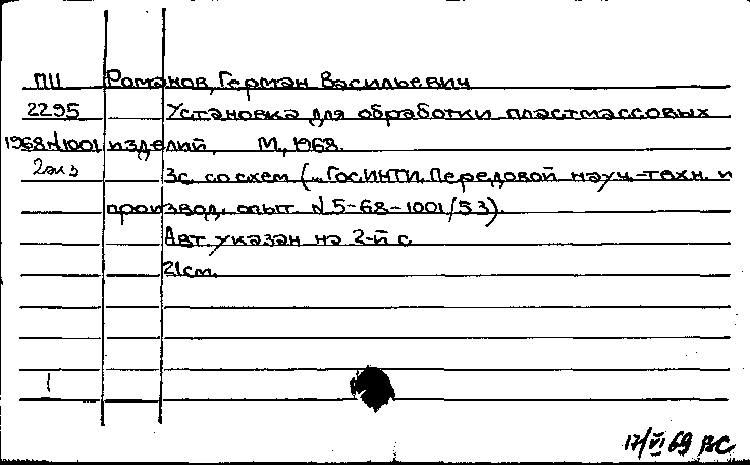 ПЦ Романов, Герман Васильевич
2295 Установка для обработки пластмассовых
1968 N1001 изделий. М., 1968.
2экз 3с. со схем. (ГОСИНТИ. Передовой науч.-техн. и
производ. опыт. N 5-68-1001/53).
Авт. указан на 2-й с.
21см.
1
17/VI 69